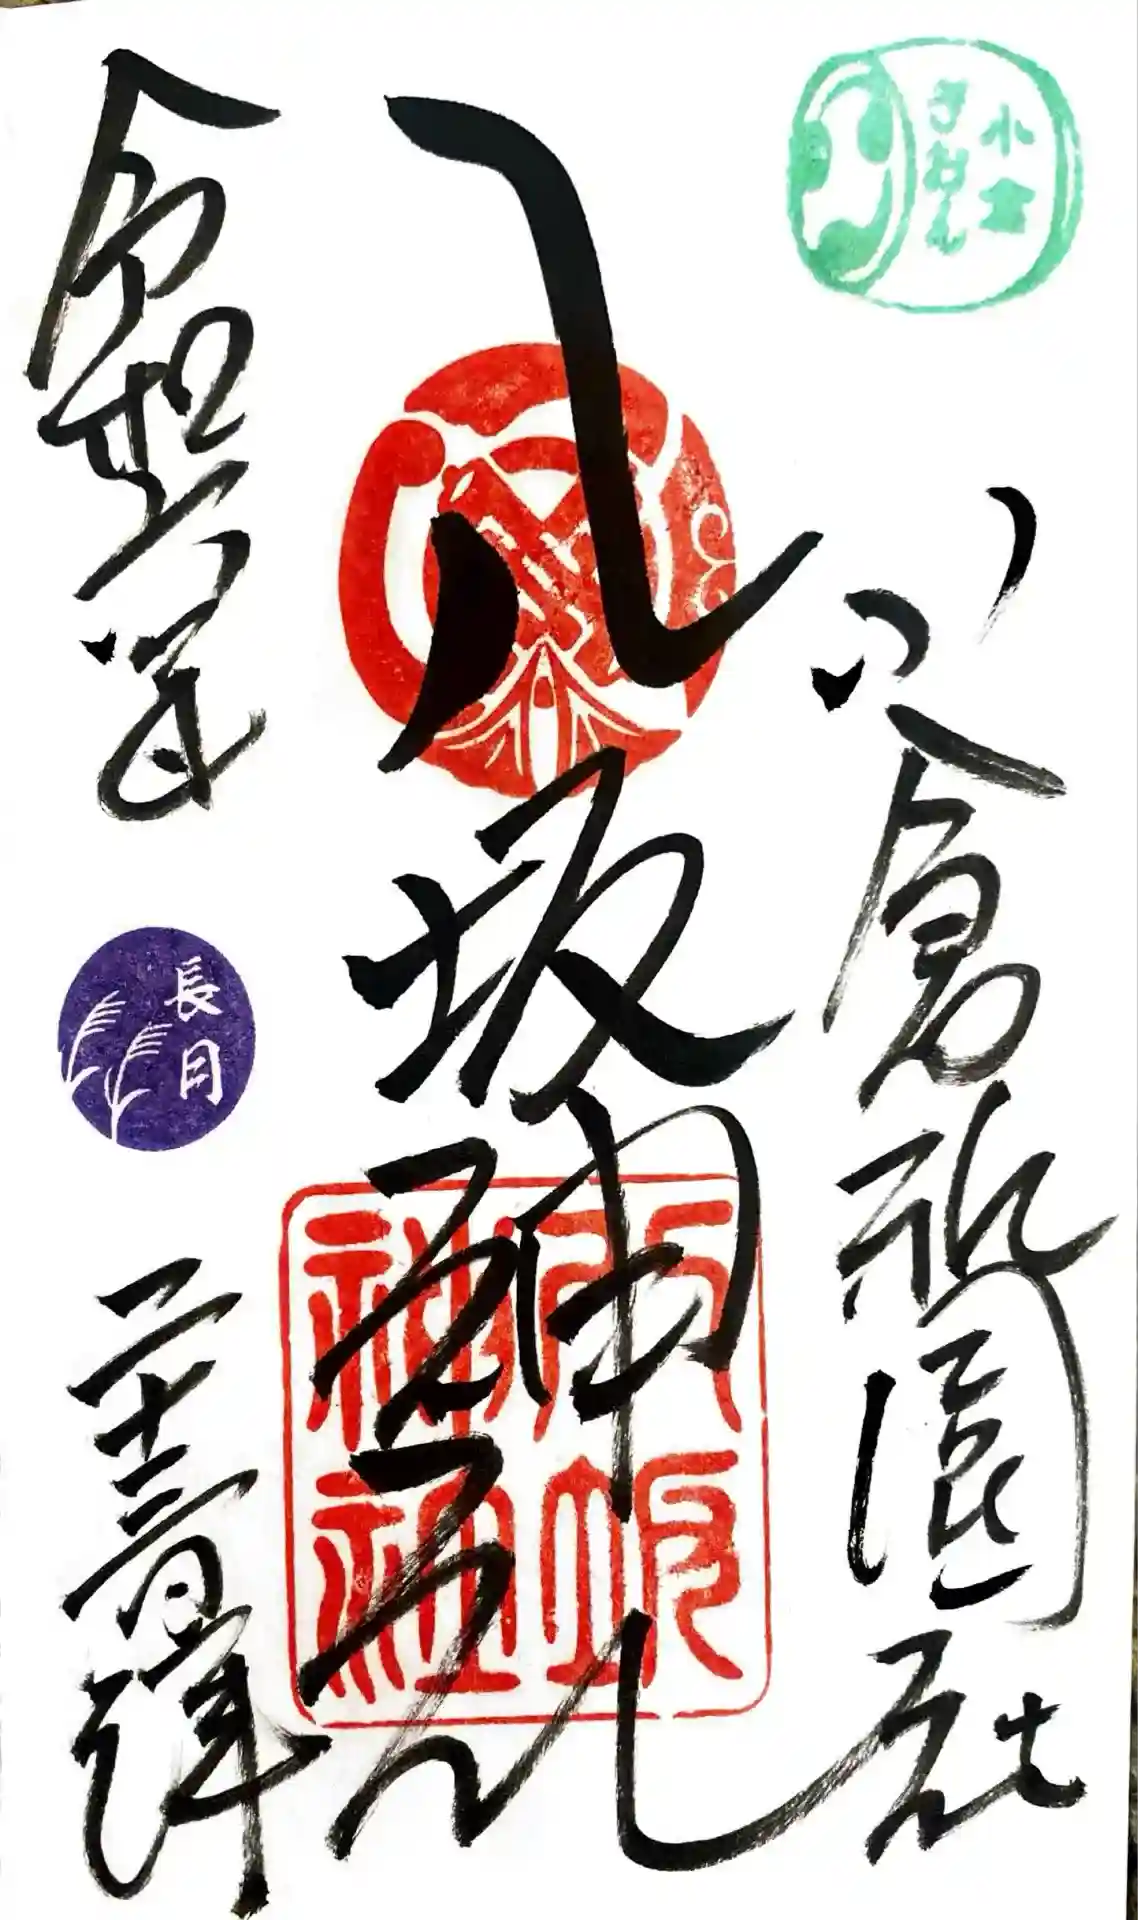 小倉
ぎおん
小倉祇園社
八坂神社
八坂
神社
令和
年
長月
二十三日
拝